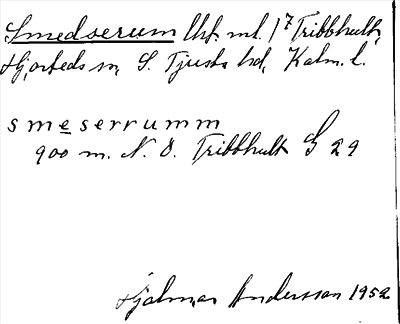 Smedserum lht. ml. 1⁷ Tribbhult,
Hjorteds sn, S. Tjusts hd, Kalm. l.
smeserrumm
900 m. N. Ö. Tribbhult G 29
Hjalmar Andersson 1952